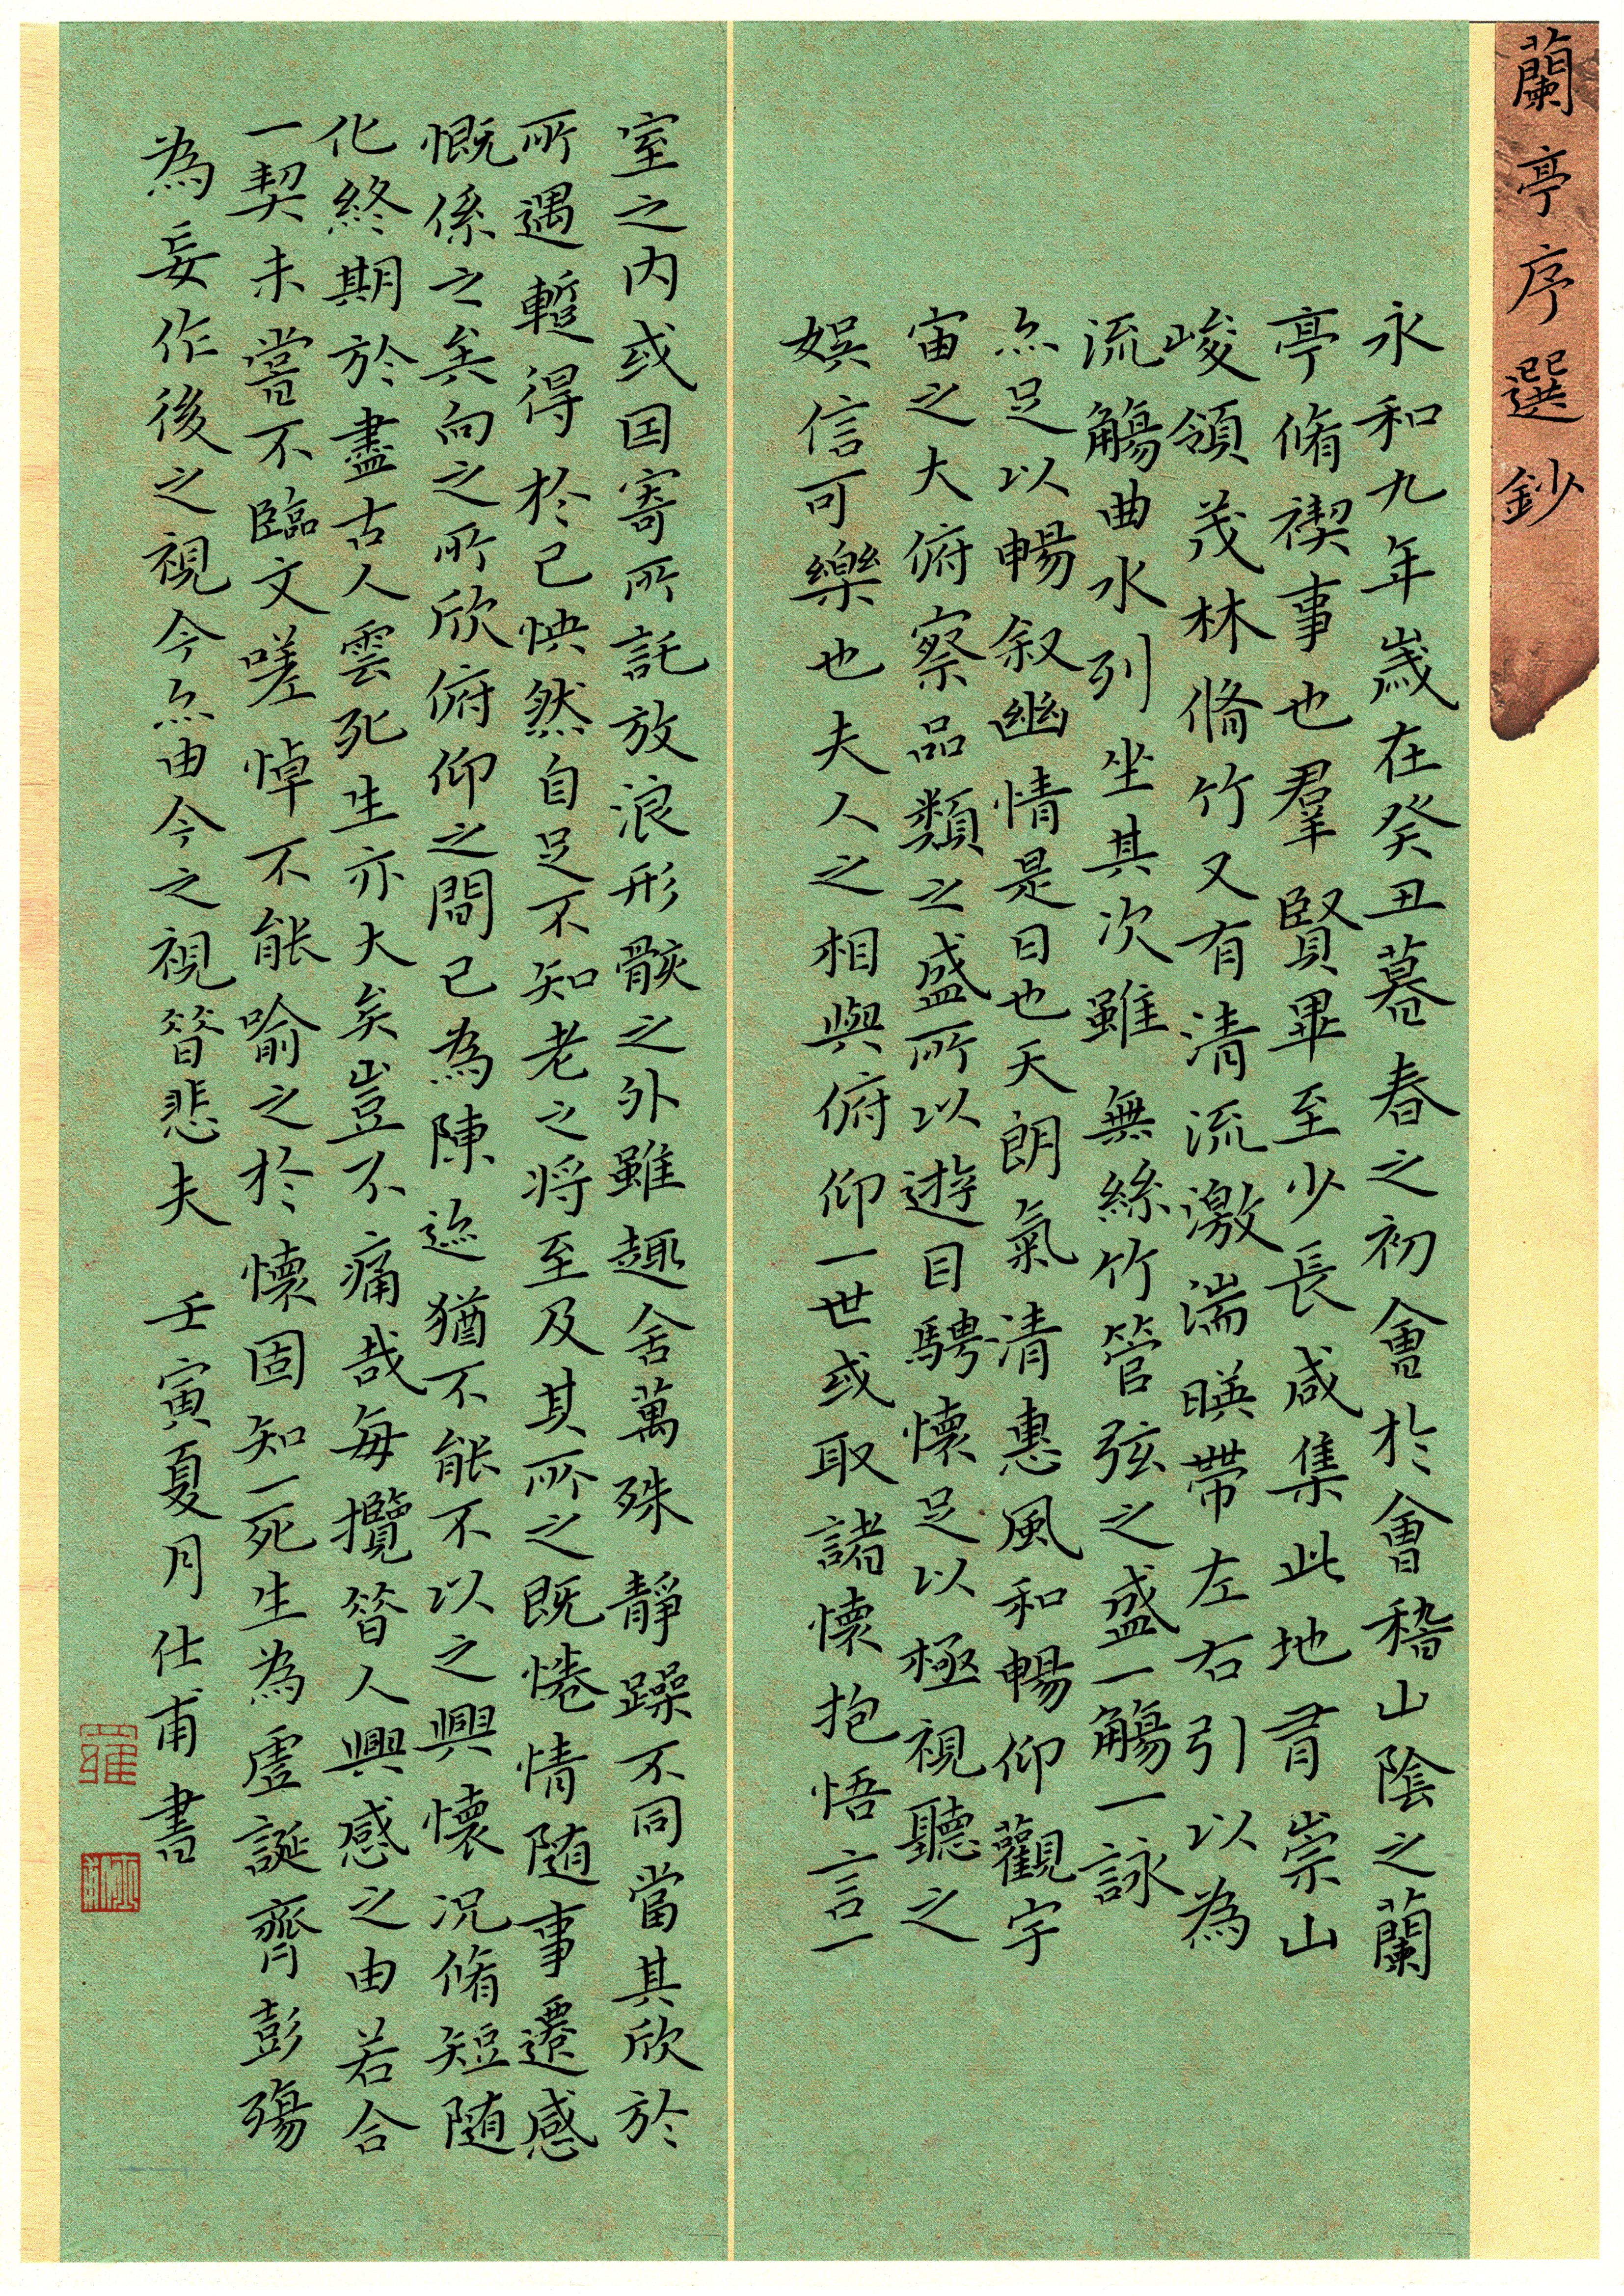 蘭亭序選鈔
永和九年歲在癸丑暮春之初會於會稽山陰之蘭
亭脩禊事也羣賢畢至少長咸集此地有崇山
峻領茂林脩竹又有清流激湍暎帶左右引以為
流觴曲水列坐其次雖無絲竹管弦之盛一觴一詠
亦足以暢叙幽情是日也天朗氣清惠風和暢仰觀宇
宙之大俯察品類之盛所以遊目騁懷足以極視聽之
娛信可樂也夫人之相與俯仰一世或取諸懷抱悟言一
室之內或因寄所託放浪形骸之外雖趣舍萬殊靜躁不同當其欣於
所遇蹔得於己怏然自足不知老之將至及其所之既惓情隨事遷感
慨係之矣向之所欣俯仰之間已為陳迹猶不能不以之興懷況脩短隨
化終期於盡古人雲死生亦大矣豈不痛哉每攬昝人興感之由若合
一契未嘗不臨文嗟悼不能喻之於懷固知一死生為虛誕齊彭殤
為妄作後之視今亦由今之視昝悲夫 壬寅夏月仕甫書